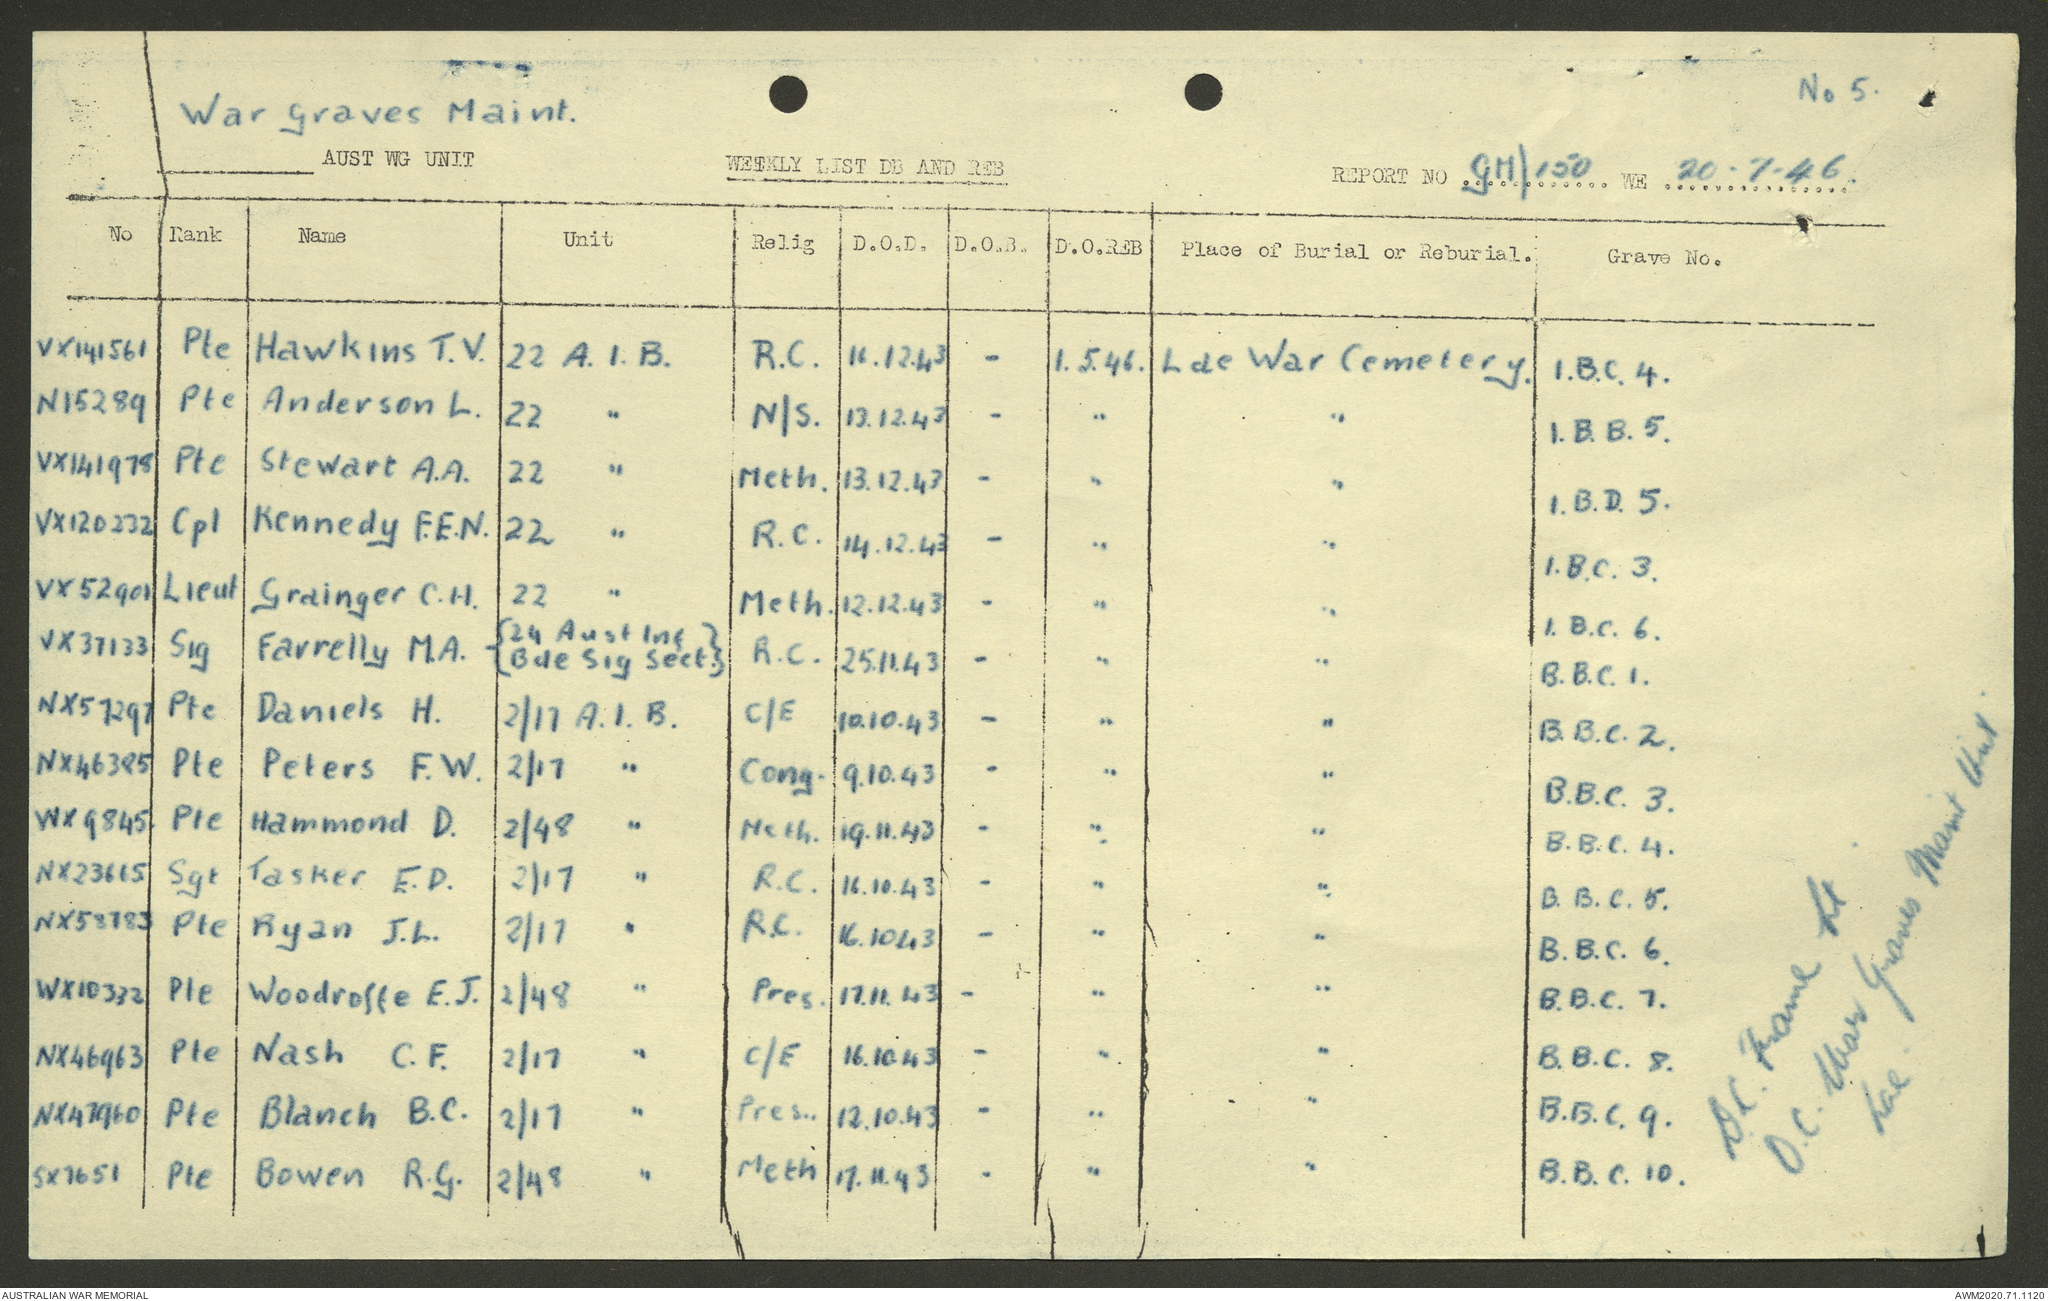 No 5.
War Graves Maint.
AUST WG UNIT WEEKLY LIST DB AND REB REPORT NO GM/150 WE 20-7-46.
No Rank Name Unit Relig D.O.D. D.O.B. D.O.REB Place of Burial or Reburial. Grave No.
VX141561 Pte Hawkins T.V. 22 A.I.B. R.C. 16.12.43 - 1.5.46. Lae War Cemetery. 1.B.C. 4.
N15289 Pte Anderson L. 22 " N/S. 13.12.43 - " " 1.B.B. 5.
VX141978 Pte Stewart A.A. 22 " Meth. 13.12.43 - " " 1.B.D. 5.
VX120232 Cpl Kennedy F.E.N. 22 " R.C. 14.12.43 - " " 1.B.C. 3.
VX52901 Lieut Grainger C.H. 22 " Meth. 12.12.43 - " " 1.B.C. 6.
VX37133 Sig Farrelly M.A. - {24 Aust Inf } R.C. 25.11.43 - " " B.B.C. 1.
{Bde Sig Sect.}
NX57297 Pte Daniels H. 2/17 A.I.B. C/E 10.10.43 - " " B.B.C. 2.
NX46385 Pte Peters F.W. 2/17 " Cong. 9.10.43 - " " B.B.C. 3.
WX9845. Pte Hammond D. 2/48 " Meth. 19.11.43 - " " B.B.C. 4.
NX23615 Sgt Tasker E.D. 2/17 " R.C. 16.10.43 - " " B.B.C. 5.
NX58783 Pte Ryan J.L. 2/17 " R.C. 16.10.43 - " " B.B.C. 6.
WX10332 Pte Woodroffe E.J. 2/48 " Pres. 17.11.43 - " " B.B.C. 7.
NX46963 Pte Nash C.F. 2/17 " C/E 16.10.43 - " " B.B.C. 8.
NX47960 Pte Blanch B.C. 2/17 " Pres.. 12.10.43 - " " B.B.C. 9.
SX7651 Pte Bowen R.G. 2/48 " Meth 17.11.43 - " " B.B.C. 10.
Frame Lt.
O.C. War Graves Maint Unit.
Lae.
AUSTRALIAN WAR MEMORIAL AWM2020.71.1120